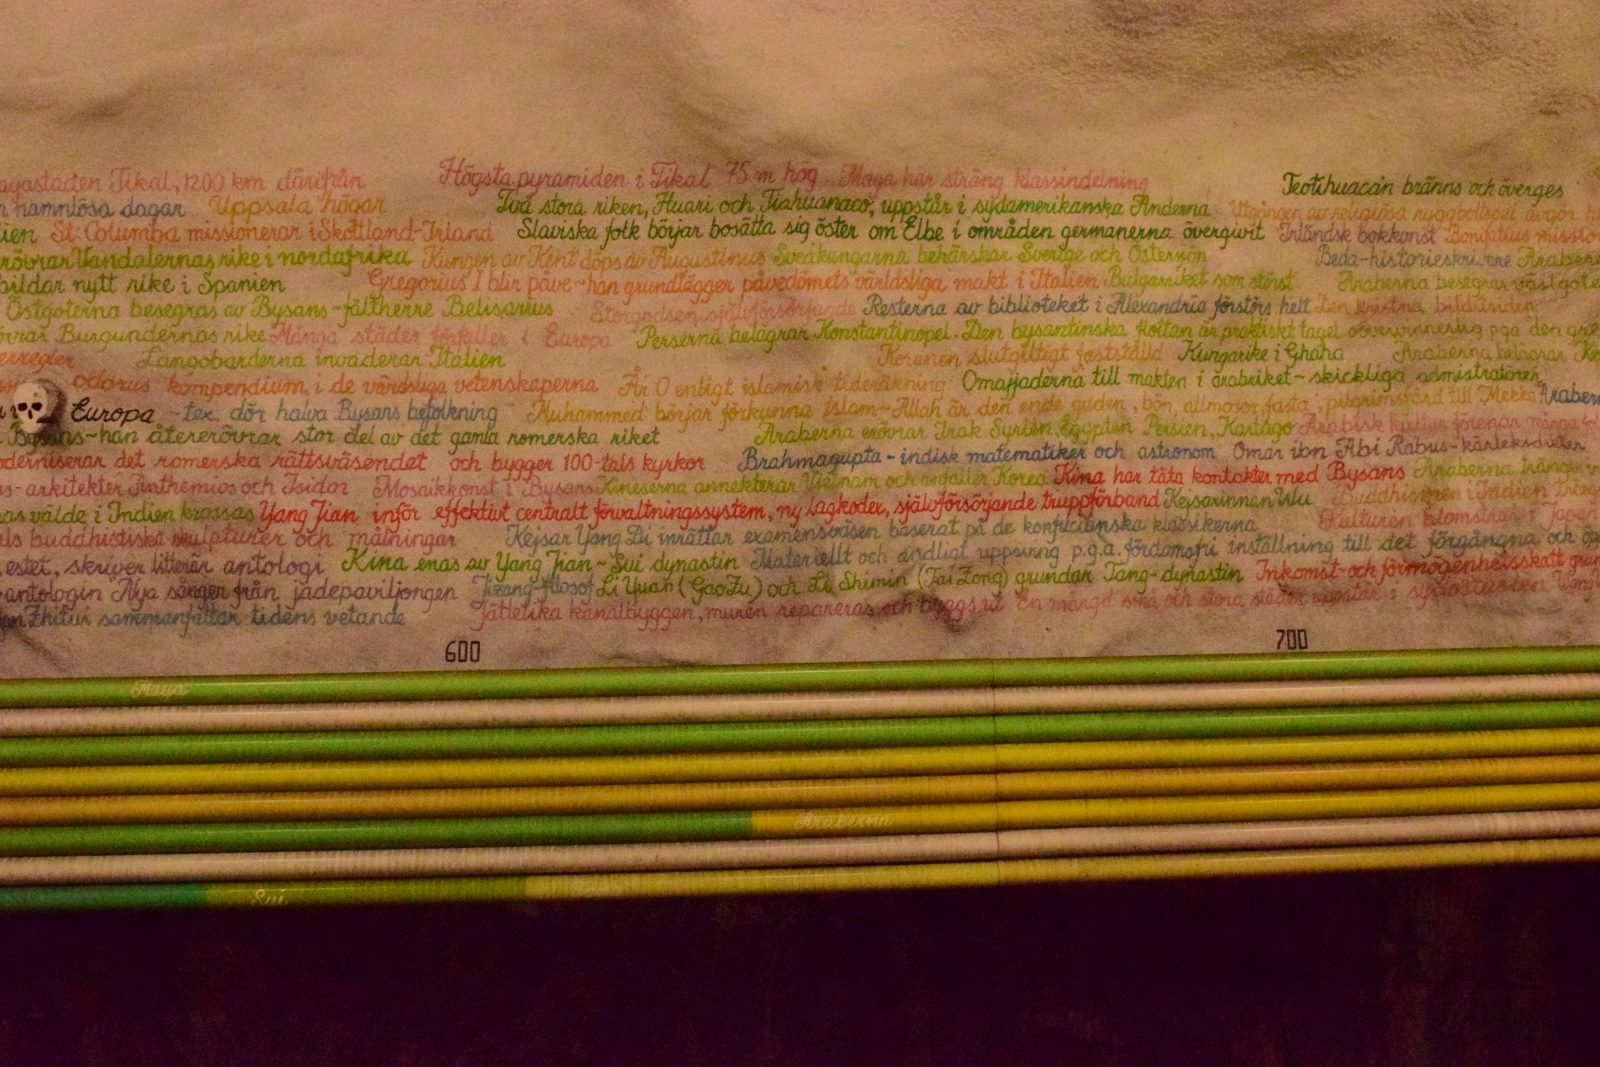 Tikal, 1200 km därifrån Högsta pyramiden i Tikal 75 m hög Maya har sträng klassindelning Teotihuacan bränns och överges
namnlösa dagar Uppsala högar Två stora riken, Huari och Tiahuanaco, uppstår i sydamerikanska Anderna
St. Columba missionerar i Skottland-Irland Slaviska folk börjar bosätta sig öster om Elbe i områden germanerna övergivit Irländsk bokkonst Bonifatius
Vandalernas rike i nordafrika Kungen av Kent döps av Augustinus Sveakungarna behärskar Sverige och Österjön Beda-historieskrivare
bildar nytt rike i Spanien Gregorius I blir påve-han grundlägger påvedömets världsliga makt i Italien Bulgarriket som störst Araberna besegras
Östgoterna besegras av Bysans-fältherre Belisarius Storgodsen självförsörjande Resterna av biblioteket i Alexandria förstörs helt Den kristna bildstriden
Burgundernas rike Många städer förfaller i Europa Perserna belägrar Konstantinopel. Den bysantinska flottan är praktiskt taget pga den
Langobarderna invaderar Italien Koranen slutgiltigt fastställd Kungarike i Ghana Araberna belägrar
kompendium i de världsliga vetenskaperna År 0 enligt islamisk tideräkning Omajjaderna till makten i arabriket-skickliga admistratörer
Europa -tex. dör halva Bysans befolkning Muhammed börjar förkunna Islam-Allah är den ende guden, bön, allmosor, fasta, pilgrimsfärd till Mekka
Bysans-han återerövrar stor del av det gamla romerska riket Araberna erövrar Irak Syrien Egypten Persien, Kartago Arabisk kultur förenar många
det romerska rättsväsendet och bygger 100-tals kyrkor Brahmagupta-indisk matematiker och astronom Omar ibn Abi Rabus-kärleksdikter
arkitekter Anthemios och Isidor Mosaikkonst i Bysans Kineserna annekterar Vietnam och anfaller Korea Kina har täta kontakter med Bysans Araberna
välde i Indien krossas Yang Jian inför effektivt centralt förvaltningssystem, ny lagkodex, självförsörjande truppförband Kejsarinnan Wu Buddhismen i Indien
buddhistiska skulpturer och målningar Kejsar Yang Di inrättar examensväsen baserat på de konfucianska klassikerna Kulturen blomstrar i Japan
estet, skriver litterär antologi Kina enas av Yang Jian-Sui dynastin Materiellt och andligt uppsving p.g.a. fördomsfri inställning till det förgångna och
antologin Nya sånger från jadepaviljongen filosof Li Yuan (Gao Zu) och Li Shimin (Tai Zong) grundar Tang-dynastin Inkomst-och förmögenhetsskatt
sammanfattar tidens vetande Jättelika kanalbyggen, muren repareras och byggs ut En mängd små och stora städer uppstår i sydostasien
600 700
Maya
Araberna
Sui